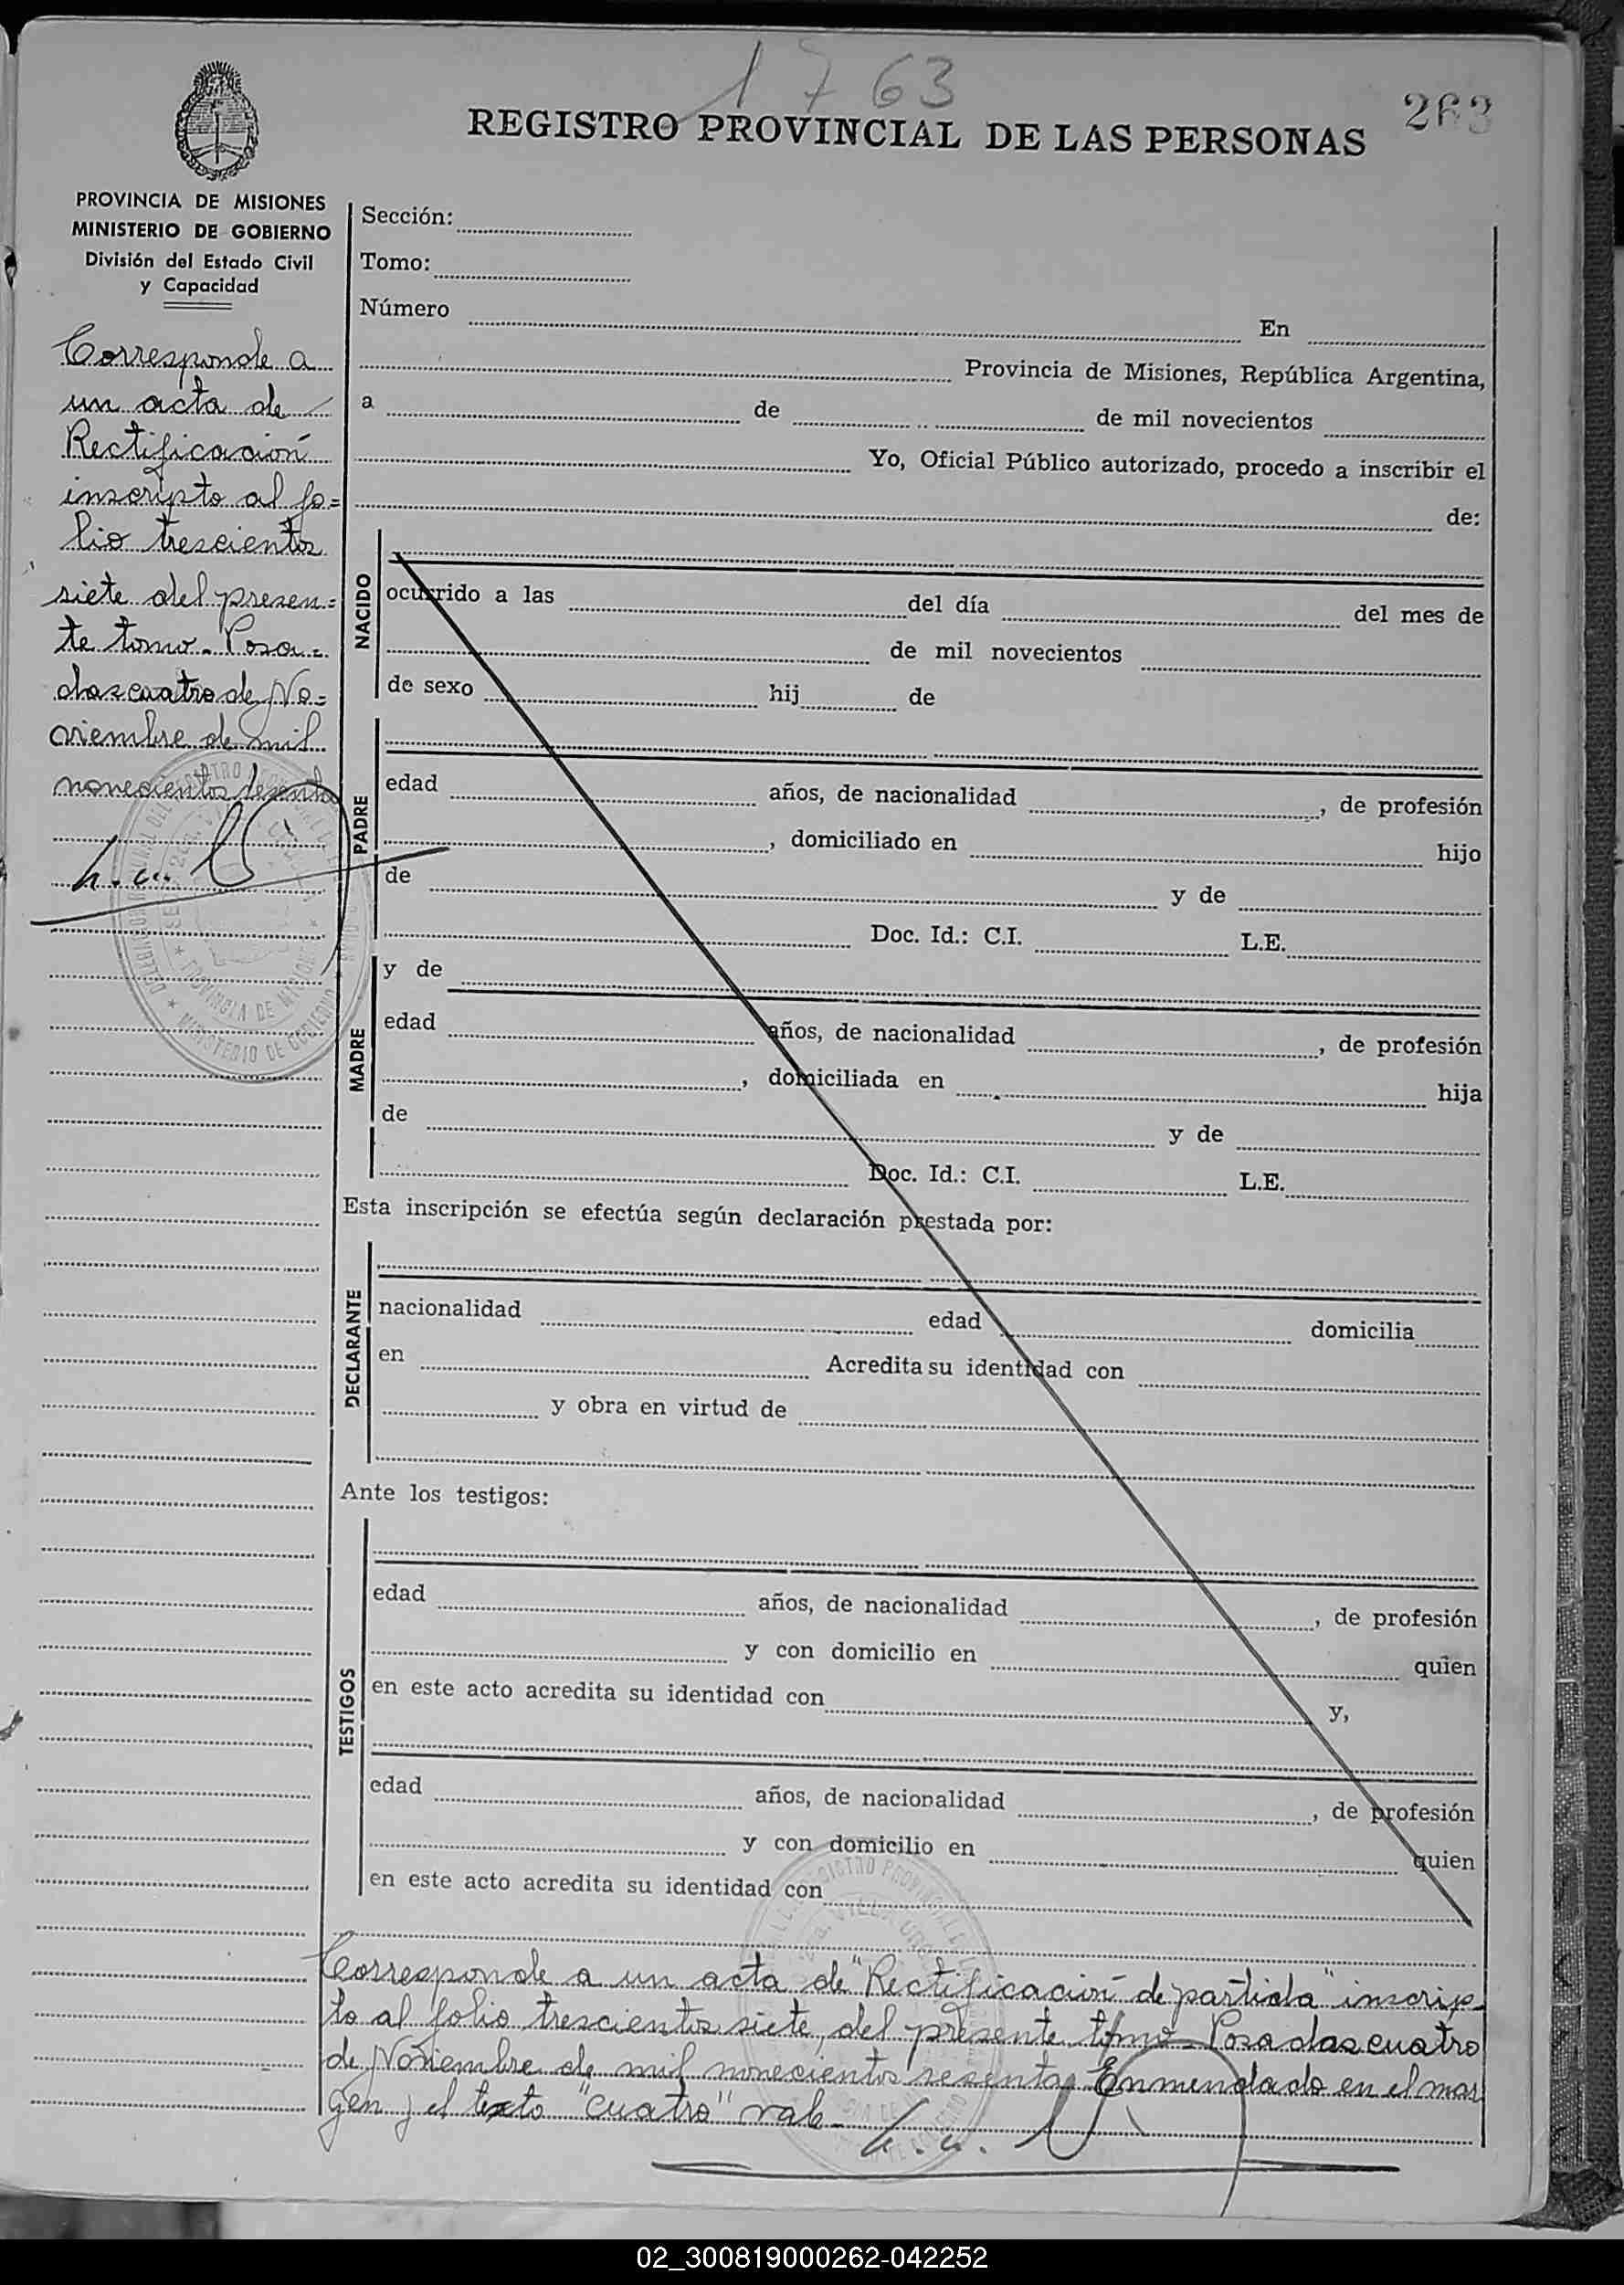 1763
263
REGISTRO PROVINCIAL DE LAS PERSONAS
PROVINCIA DE MISIONES
MINISTERIO DE GOBIERNO
División del Estado Civil
y Capacidad
Corresponde a
un acta de
Rectificación
inscripto al fo=
lio trescientos
siete del presen=
te tomo. Posa=
das cuatro de No=
viembre de mil
novecientos sesenta
Sección:
Tomo:
Número En
Provincia de Misiones, República Argentina,
a de de mil novecientos
Yo, Oficial Público autorizado, procedo a inscribir el
de:
NACIDO
ocurrido a las del día del mes de
de mil novecientos
de sexo hij de
PADRE
edad años, de nacionalidad , de profesión
, domiciliado en hijo
de y de
Doc. Id.: C.I. L.E.
MADRE
y de
edad años, de nacionalidad , de profesión
, domiciliada en hija
de y de
Doc. Id.: C.I. L.E.
Esta inscripción se efectúa según declaración prestada por:
DECLARANTE
nacionalidad edad domicilia
en Acredita su identidad con
y obra en virtud de
Ante los testigos:
TESTIGOS
edad años, de nacionalidad , de profesión
y con domicilio en quien
en este acto acredita su identidad con y,
edad años, de nacionalidad , de profesión
y con domicilio en quien
en este acto acredita su identidad con
Corresponde a un acta de "Rectificación de partida" inscrip-
to al folio trescientos siete, del presente tomo - Posadas cuatro
de Noviembre de mil novecientos sesenta Enmendado en el mar
gen y el texto "cuatro" vale-
PROVINCIA DE MISIONES
MINISTERIO DE GOBIERNO
02_300819000262-042252